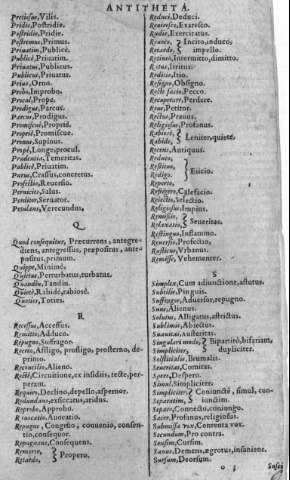 ANTITHETA.
Pretiosus, Vilis.
Pridie, Postridie.
Postridie, Pridie.
Postremus, Primus.
Privatim, Publicè.
Publicè, Privatim.
Privatus, Publicus.
Publicus, Privatus.
Probo, Improbo.
Procul, Propè.
Prodigus, Parcus.
Parcus, Prodigus.
Promiscuè, Propriè.
Propriè, Promiscue.
Pronus, Supinus.
Propè, Longe, procul.
Prudentia, Temeritas.
Publicè, Privatim.
Purus, Crassus, concretus.
Profectio, Reversio.
Pernicies, Salus.
Perditor, Servator.
Petulans, Verecundus.
Q
Quod consequitur, Præcurrens, antegre-
diens, antegressus, præpositus, ante-
positus, primum.
Quippe, Minimè.
Quietus, Perturbatus, turbatus.
Quandiu, Tandiu.
Quietè, Rabidè, rabiosè.
Quoties, Toties.
R.
Recessus, Accessus.
Remitto, Adduco.
Repugno, Suffragor.
Recreo, Affligo, profligo, prosterno, de-
primo.
Reconcilio, Alieno.
Rectè, Circuitione, ex insidiis, tecte, per-
peram.
Requiro, Declino, depello, aspernor.
Redundans, exsiccatus, aridus.
Reprobo, Approbo.
Revocatio, Avocatio.
Repugno, Congruo, convenio, consen-
tio, consequor.
Repugnans, Consequens.
Remoror,
Retardo, Propero.
Reduci, Deduci.
Rudis, Exercitatus.
Revoco, Incito, induco,
Retardo, impello.
Retineo, Intermitto, dimitto.
Ratus, Irritus.
Resigno, Obsigno.
Recte facio, Pecco.
Recuperare, Perdere.
Reus, Petitor.
Rectus, Pravus.
Religiosus, Profanus.
Rabiosè,
Rabidè, Leniter, quietè.
Recens, Antiquus.
Reduco,
Restituo, Eiicio.
Reporto,
Refrigero, Calefacio.
Reiectio, Selectio.
Religiosus, Impius.
Remissio,
Relaxatio, Severitas.
Restinguo, Inflammo.
Reversio, Profectio.
Rusticus, Urbanus.
Remissè, Vehementer.
S
Simplex, Cum adiunctione, astutus.
Subtilis, Pinguis.
Suffragor, Adversor, repugno.
Suus, Alienus.
Solutus, Alligatus, astrictus.
Sublimis, Abiectus.
Suavitas, Austeritas.
Singulari modo, Bipartitò, bifariam,
Simpliciter, dupliciter.
Solstitialis, Brumalis.
Severitas, Comitas.
Spero, Despero.
Simul, Simpliciter.
Simpliciter, Coniunctè, simul, con-
Separatim, iunctim.
Separo, Connecto, coniungo.
Sacer, Profanus, religiosus.
Submissa vox, Contenta vox.
Secundum, Pro contra.
Sensim, Cursim.
Sanus, Demens, ægrotus, insaniens.
Sursum, Deorsum.